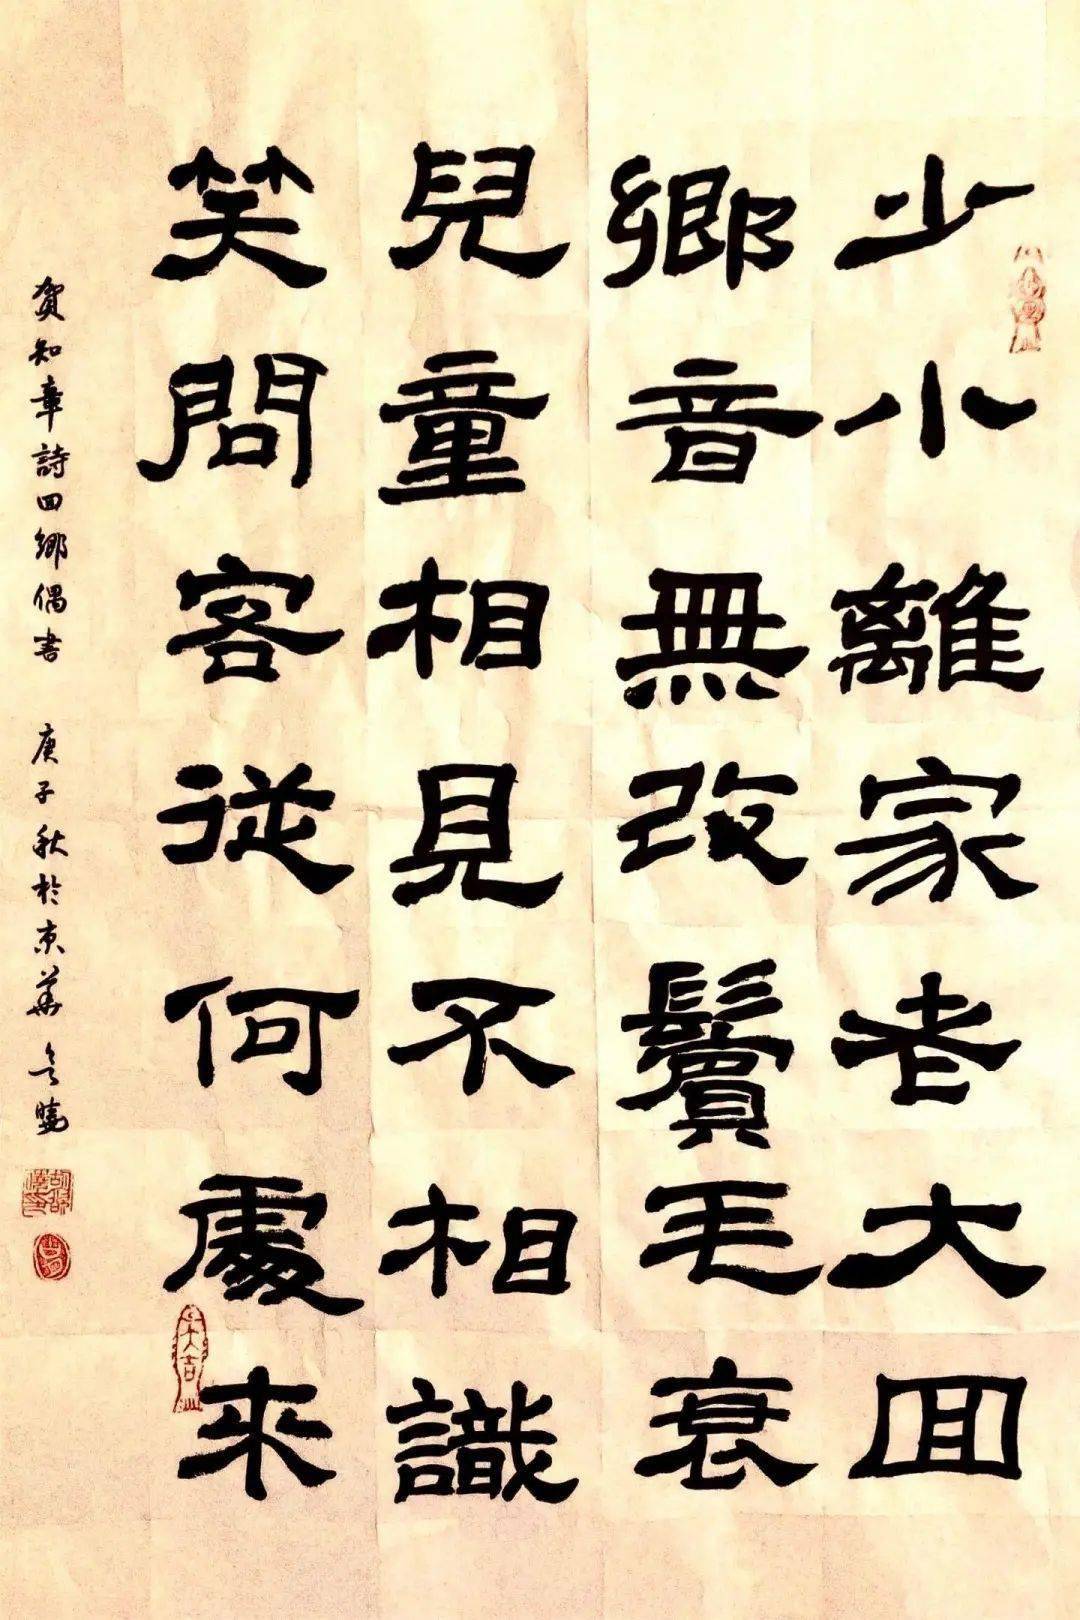 少小離家老大回
鄉音無改鬢毛衰
兒童相見不相識
笑問客従何處來
賀知章詩回鄉偶書 庚子秋於京華
大吉